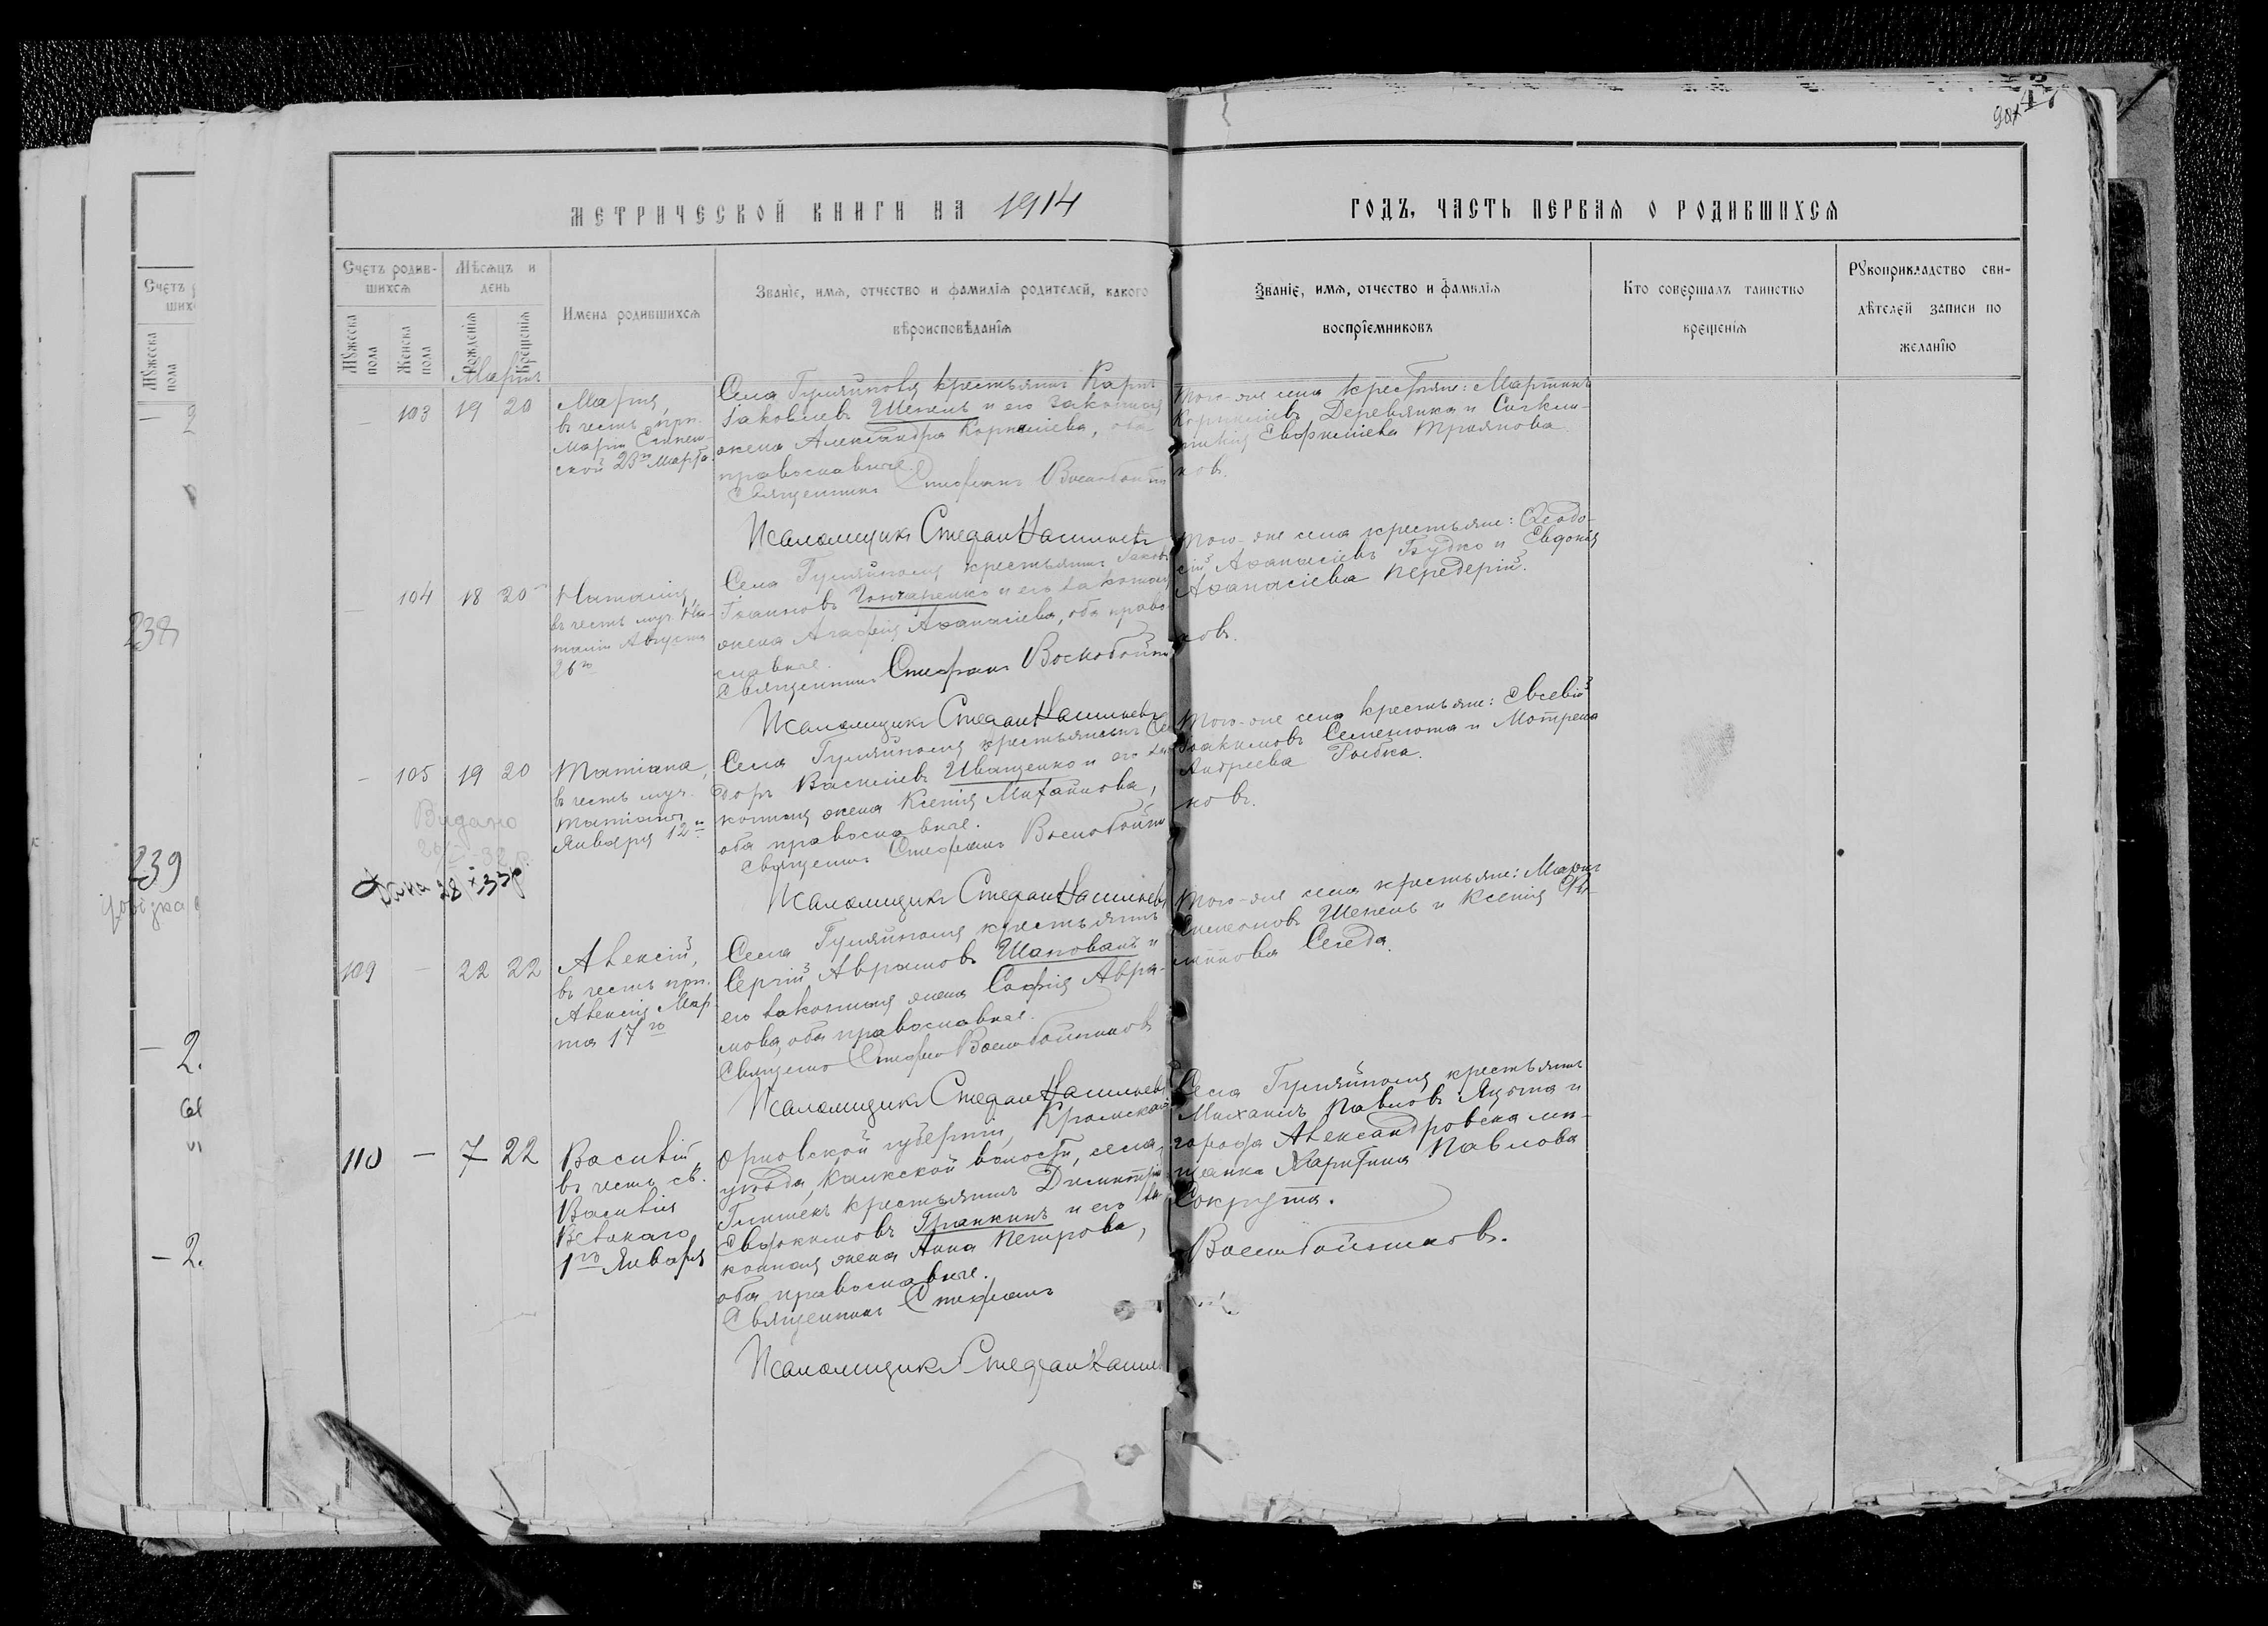 МЕТРИЧЕСКОЙ КНИГИ НА 1914 ГОДЪ, ЧАСТЬ ПЕРВАЯ О РОДИВШИХСЯ
Счетъ родив-
шихся
Мужеска
пола
Женска
пола
Мѣсяцъ и
день
Рожденія
Крещенія
Имена родившихся
Званіе, имя, отчество и фамилія родителей, какого
вѣроисповѣданія
Званіе, имя, отчество и фамилія
воспріемниковъ
Кто совершалъ таинство
крещенія
Рукоприкладство сви-
дѣтелей записи по
желанію
Мартъ
— 103 19 20
Марія,
въ честь прп.
Маріи Египет-
ской
Села Гуляйполя крестьянинъ Карпъ
Іаковлевъ Шепель и его законная
жена Александра Корнилиева, оба
православные.
Священникъ Стефанъ Воскобойни
ковъ.
Псаломщикъ Стефанъ
Того-же села крестьяне: Мартинъ
Корниліевъ Деревянко и
Троянова
— 104 18 20
Наталія,
въ честь муч. На-
таліи Августа
26го
Села Гуляйполя крестьянинъ Іаковъ
Іоанновъ Гончаренко и его законная
жена Агафія Аѳанасіева, оба право-
славные.
Священникъ Стефанъ Воскобойни
ковъ.
Псаломщикъ Стефанъ
Того-же села крестьяне: Ѳеодо-
сій Аѳанасіевъ Будко и Евдокія
Аѳанасіева Передерій.
— 105 19 20
Татіана,
въ честь муч.
Татіаны
Января 12го
Видано
Дана 28/X 33р.
Села Гуляйполя крестьянинъ Ѳе
доръ Василіевъ Иващенко и его за
конная жена Ксенія Михайлова,
оба православные.
Священникъ Стефанъ Воскобойни
ковъ.
Псаломщикъ Стефанъ
Того-же села крестьяне: Евсевій
Іоакимовъ Семенюта и Мотрена
Андреева Рыбка.
109 — 22 22
Алексій,
въ честь прп.
Алексія Мар-
та 17го
Села Гуляйполя крестьянинъ
Сергій Аврамовъ Шаповалъ и
его законная жена Софія Авра-
мова, оба православные.
Священникъ Стефанъ Воскобойниковъ
Псаломщикъ Стефанъ
Того-же села крестьяне: Маркъ
Симеоновъ Шепель и Ксенія Фи-
липпова Середа.
110 — 7 22
Василій,
въ честь св.
Василія
Великаго
1го Января
Орловской губерніи, Кромскаго
уѣзда, волости, села
крестьянинъ Димитрій
Евфимовъ Гранкинъ и его за
конная жена Анна Петрова,
оба православные.
Священникъ Стефанъ
Воскобойниковъ.
Псаломщикъ Стефанъ
Села Гуляйполя крестьянинъ
Михаилъ Павловъ Яцюта и
города Александровска мѣ-
щанка Харитина Павлова
Сокрута.
238
239